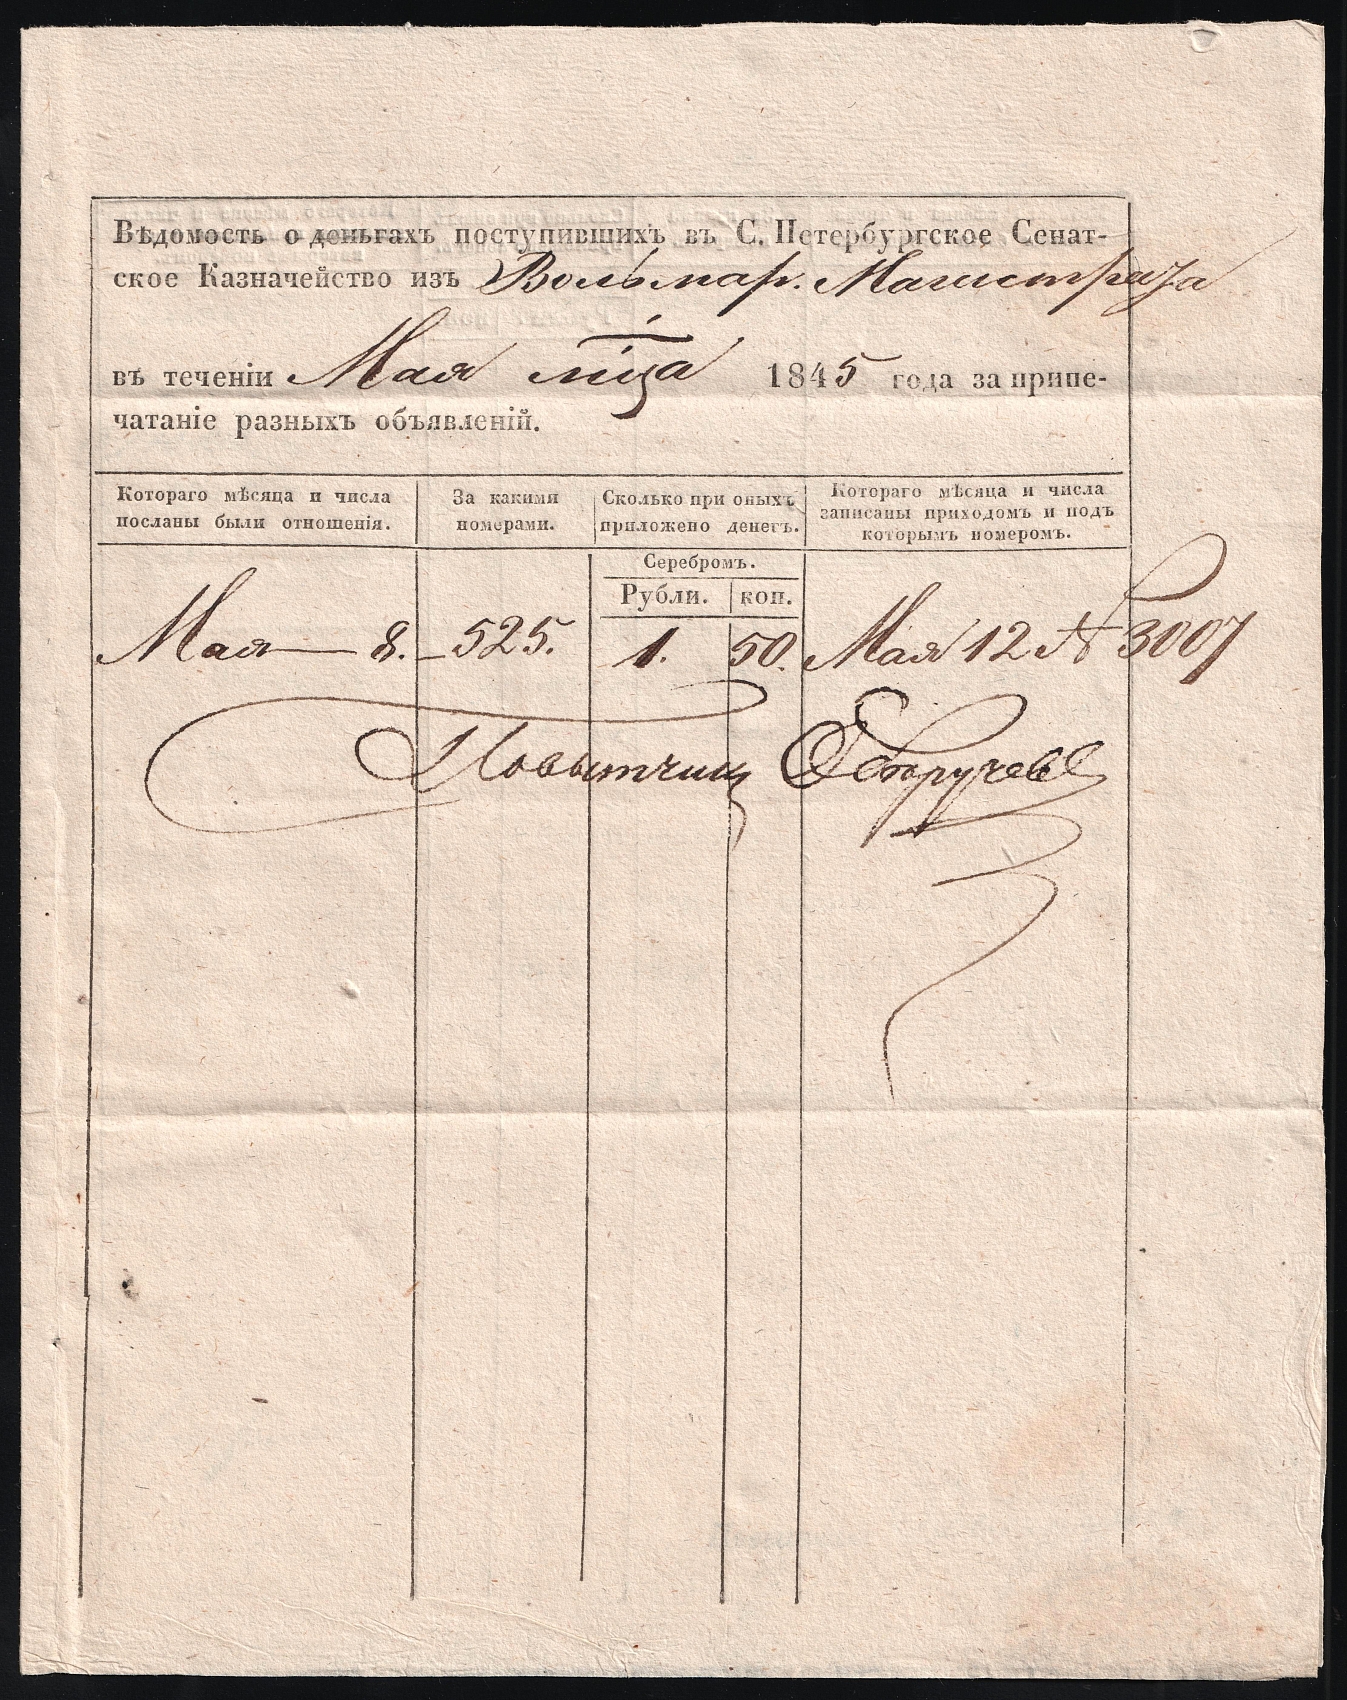 Вѣдомость о деньгахъ поступившихъ въ С. Петербургское Сенат-
ское Казначейство изъ Вольмар. Магистрата
въ теченіи Мая мѣца 1845 года за припе-
чатаніе разныхъ объявленій.
Котораго мѣсяца и числа
посланы были отношенія.
За какими
номерами.
Сколько при оныхъ
приложено денегъ.
Котораго мѣсяца и числа
записаны приходомъ и подъ
которымъ номеромъ.
Серебромъ.
Рубли. коп.
Мая — 8. — 525. 1. 50. Мая 12 № 3007
Повытчик